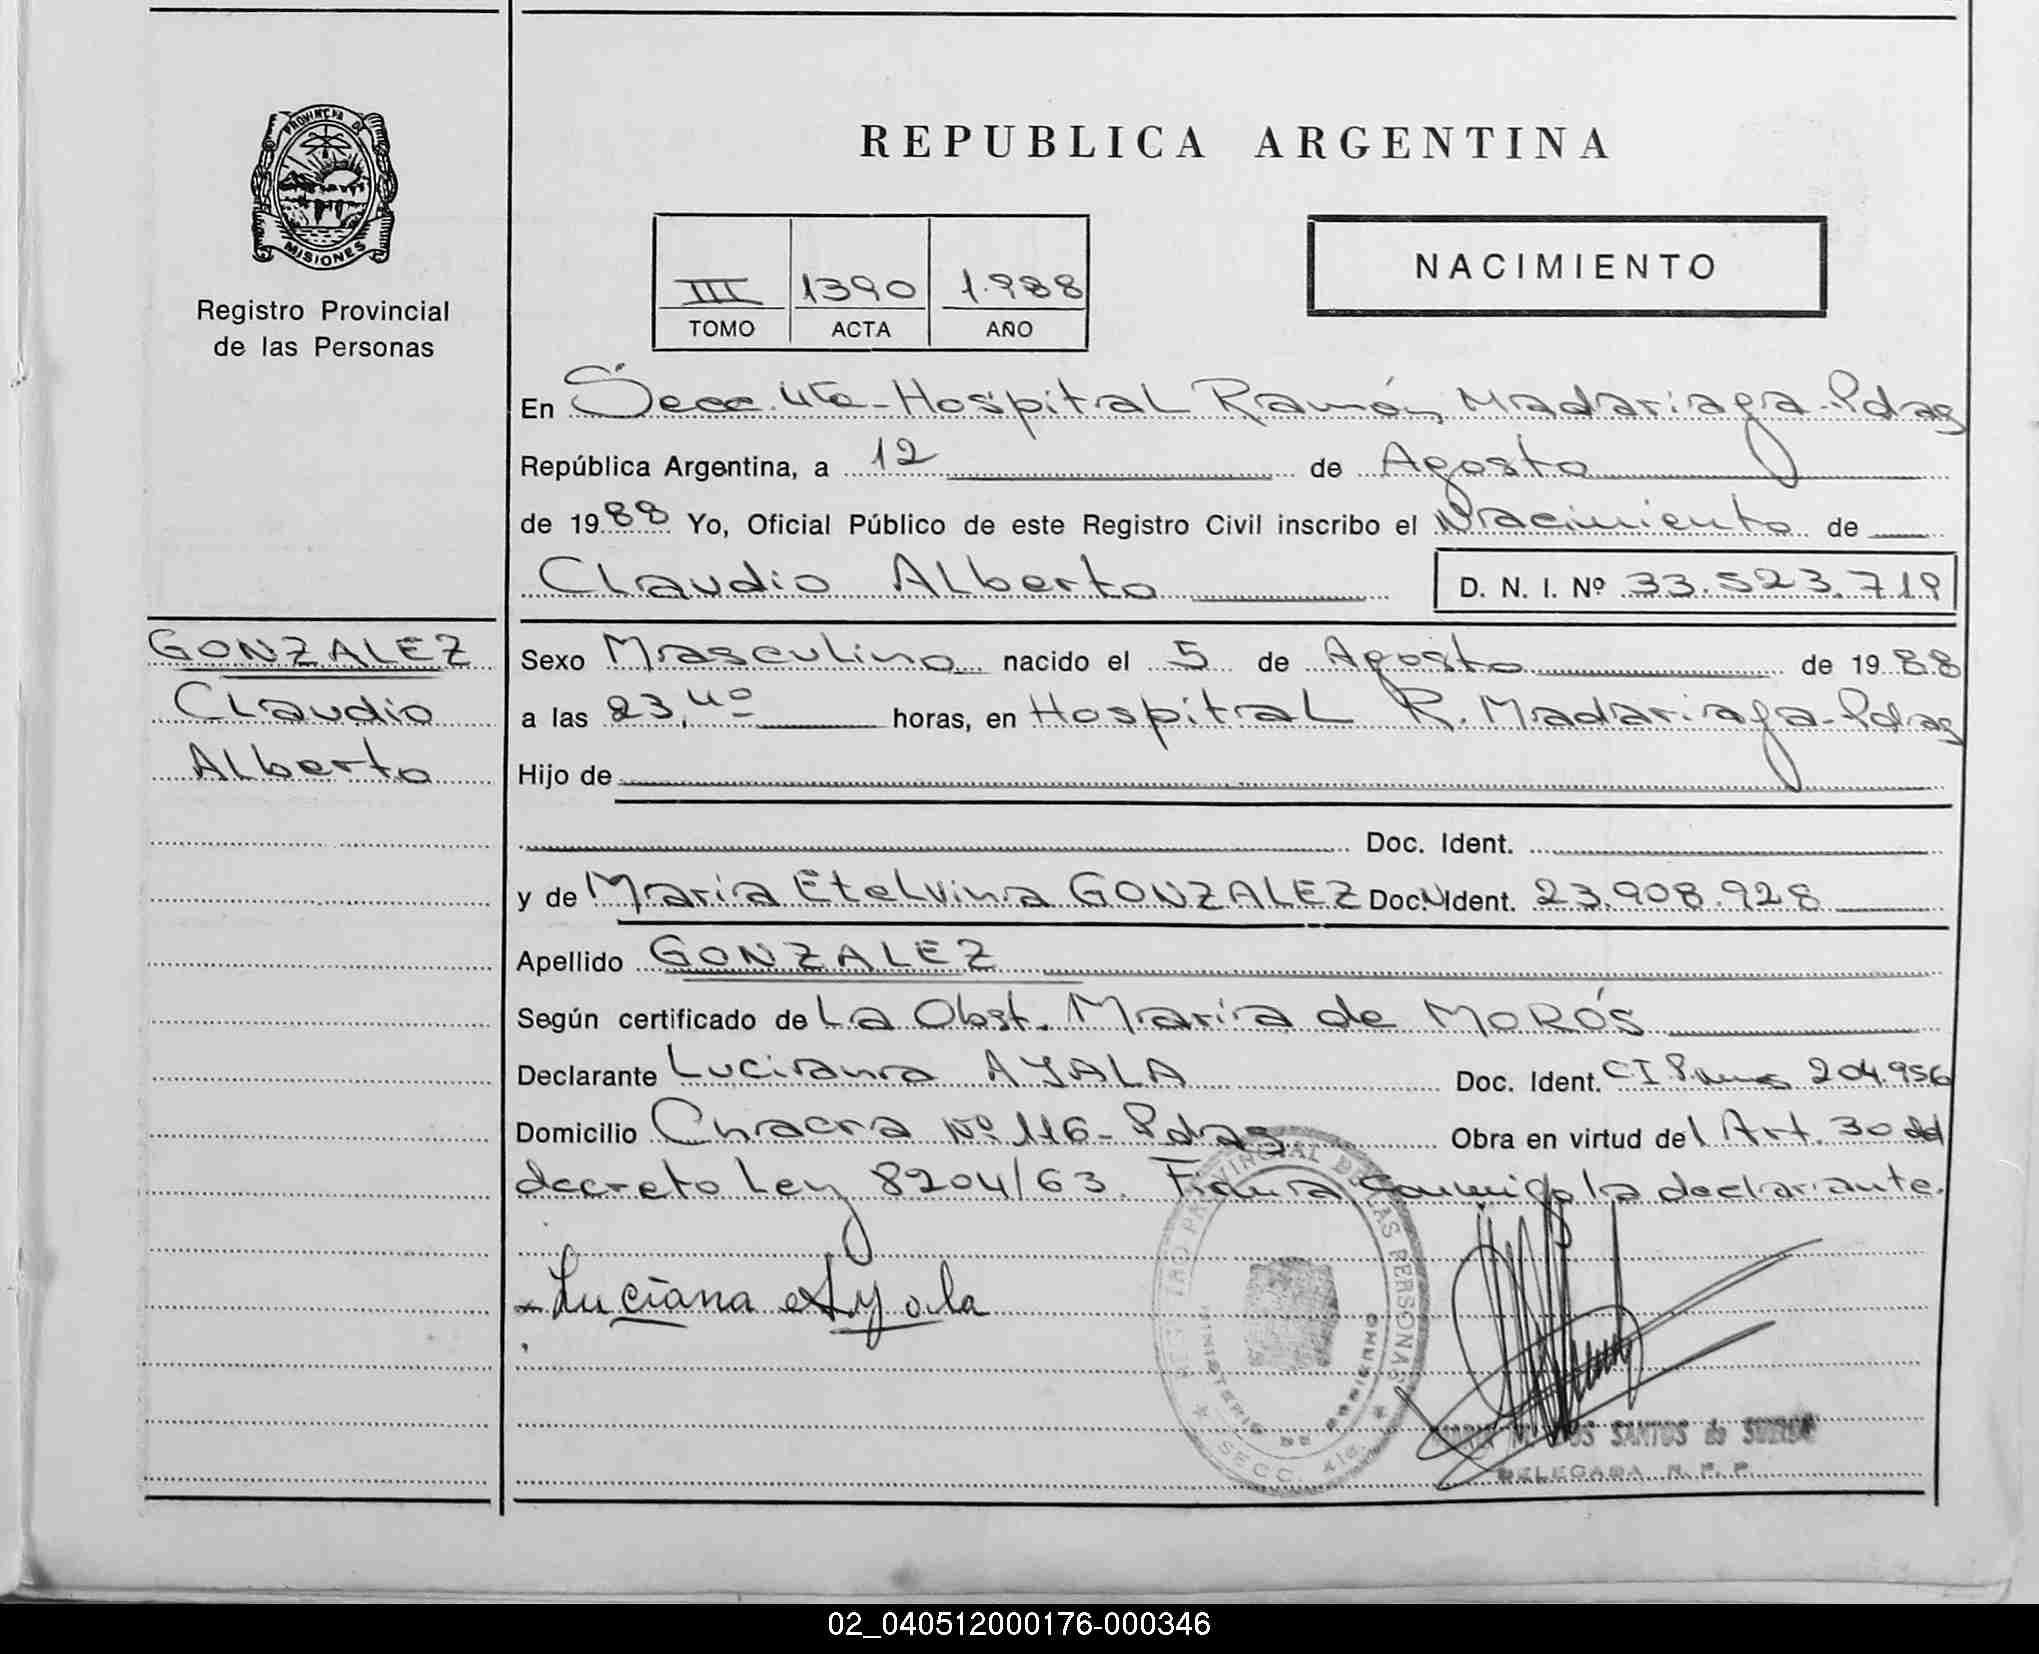 PROVINCIA DE
MISIONES
Registro Provincial
de las Personas
REPUBLICA ARGENTINA
III 1390 1.988
TOMO ACTA AÑO
NACIMIENTO
En Secc. 4ta - Hospital Ramón Madariaga - Pdas
República Argentina, a 12 de Agosto
de 1988 Yo, Oficial Público de este Registro Civil inscribo el Nacimiento de
Claudio Alberto D. N. I. Nº 33.523.719
GONZALEZ
Claudio
Alberto
Sexo Masculino nacido el 5 de Agosto de 1988
a las 23,40 horas, en Hospital R. Madariaga - Pdas
Hijo de
Doc. Ident.
y de María Etelvina GONZALEZ Doc. Ident. 23.908.928
Apellido GONZALEZ
Según certificado de La Obst. María de MORÓS
Declarante Luciana AYALA Doc. Ident. CI 204.956
Domicilio Chacra Nº 116 - Pdas Obra en virtud del Art. 30 del
decreto Ley 8204/63. Firma conmigo la declarante.
Luciana Ayala
REGISTRO PROVINCIAL DE LAS PERSONAS
MINISTERIO DE GOBIERNO
SECC. 4ta
SANTOS de
DELEGADA R. P. P.
02_040512000176-000346